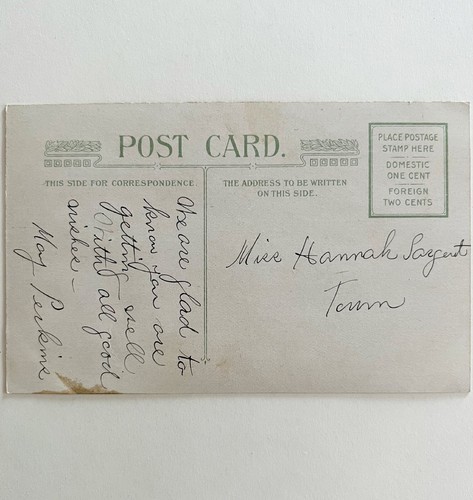 POST CARD.
THIS SIDE FOR CORRESPONDENCE
THE ADDRESS TO BE WRITTEN
ON THIS SIDE.
PLACE POSTAGE
STAMP HERE
DOMESTIC
ONE CENT
FOREIGN
TWO CENTS
We are glad to
know you are
getting well.
With all good
wishes –
May Perkins
Miss Hannah Sargent
Town